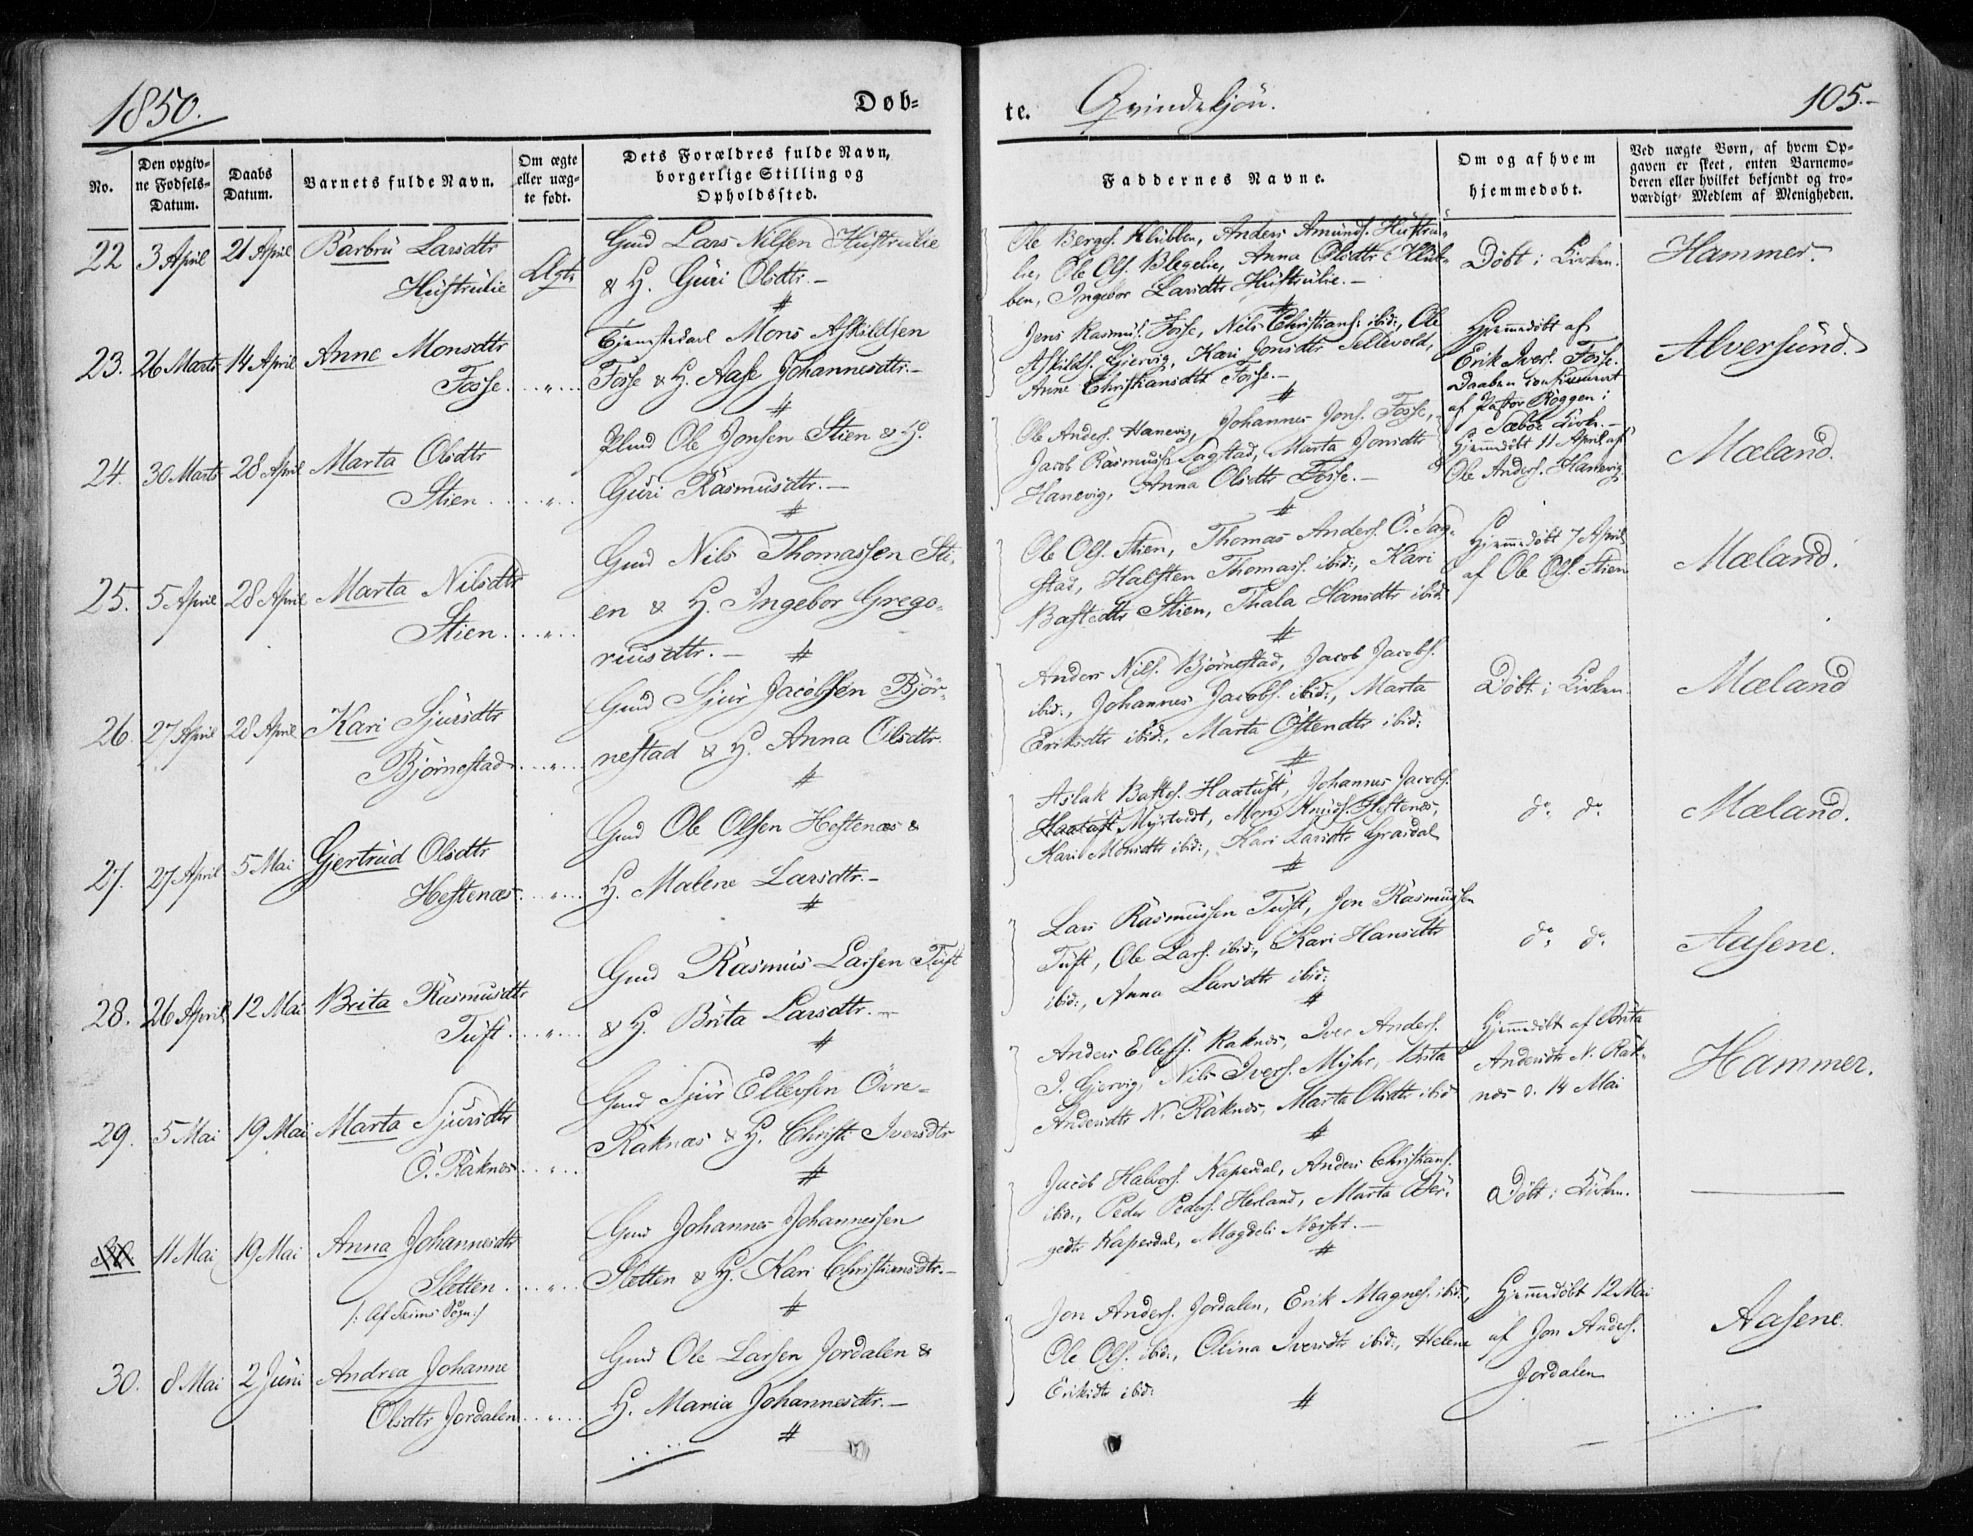 1850.
Døb-
te.
Qvindekjön.
105.-
No.
Den opgiv-
ne Fødsels-
Datum.
Daabs
Datum.
Barnets fulde Navn.
Om ægte
eller uæg-
te født.
Dets Forældres fulde Navn,
borgerlige Stilling og
Opholdssted.
Faddernes Navne.
Om og af hvem
hjemmedøbt.
Ved uægte Børn, af hvem Op-
gaven er skeet, enten Barnemo-
deren eller hvilket bekjendt og tro-
værdigt Medlem af Menigheden.
22 3 April 21 April Barbru Larsdtr
Hustrulie Ægte
Gmd Lars Nilsen Hustrulie
& H. Guri Olsdtr. -
#
Ole Bergs. Klubben, Anders Amunds. Hustru-
lie, Ole Ols. Blegelie, Anna Olsdtr Klub-
ben, Ingebor Larsdtr Hustrulie. -
#
Döbt i Kirken.
Hammer.
23. 26 Marts 14 April Anne Monsdtr
Fosse. . . " . .
Tjenestekarl Mons Askildsen
Fosse & H. Aase Johannesdtr. -
#
Jens Rasmus. Fosse, Nils Christians. ibid:, Ole
Askilds. Gjervig, Kari Jonsdtr Sellevold,
Anne Christiansdtr Fosse. -
#
Hjemmedöbt af
Erik Ivers. Fosse.
Daaben confirmeret
af Pastor Roggen i
Sæbø Kirke. -
Alversund.
24. 30 Marts 28 April Marta Olsdtr
Stien . . . . " . .
Ole Jonsen Stien & H.
Guri Rasmusdtr. -
#
Ole Anders. Hanevig, Johannes Jons. Fosse,
Jacob Rasmuss. Sagstad, Marta Jonsdtr
Hanevig, Anna Olsdtr Fosse. -
#
Hjemmedöbt 11 April af
Ole Anders. Hanevig
Mæland.
25. 5 April 28 April Marta Nilsdtr
Stien. . . . " . .
Gmd Nils Thomassen Sti-
en & H. Ingebor Grego-
riusdtr. - #
Ole Ols. Stien, Thomas Anders. Ö. Sag-
stad, Halsten Thomass. ibid:, Kari
Bastedtr Stien, Thala Hansdtr ibid:
#
Hjemmedöbt 7 April
af Ole Ols. Stien
Mæland.
26. 27 April 28 April Kari Sjursdtr
Björnestad. . . . " . .
Gmd Sjur Jacobsen Björ-
nestad & H. Anna Olsdtr.
#
Anders Nils. Björnestad, Jacob Jacobs.
ibid:, Johannes Jacobs. ibid:, Marta
Eriksdtr ibid:, Marta Östendtr ibid:
#
Döbt i Kirken.
Mæland
27. 27 April 5 Mai Gjertrud Olsdtr
Hestenæs. . . " . .
Gmd Ole Olsen Hestenæs &
H. Malene Larsdtr. -
#
Aslak Bastes. Haatuft, Johannes Jacobs.
Haatuft Myrtvedt, Mons Knuds. Hestenæs,
Kari Monsdtr ibid:, Kari Larsdtr
#
do. do.
Mæland.
28. 26 April 12 Mai Brita Rasmusdtr
Tuft. . . . " . .
Gmd Rasmus Larsen Tuft
& H. Brita Larsdtr. -
#
Lars Rasmussen Tuft, Jon Rasmussen
Tuft, Ole Lars. ibid:, Kari Hansdtr
ibid:, Anna Larsdtr ibid:
#
do. do.
Aasene.
29. 5 Mai 19 Mai Marta Sjursdtr
Ö. Raknes. . . " . .
Gmd Sjur Ellevsen Övre-
Raknæs & H. Christi Iversdtr
#
Anders Ellefs. Raknes, Iver Anders.
I. Gjervig, Nils Ivers. Myhr, Brita
Andersdtr N. Raknes, Marta Olsdtr ibid
#
Hjemmedöbt af Brita
Andersdtr N. Rak-
nes d. 14 Mai
Hammer.
11 Mai 19 Mai Anna Johannesdtr
Sletten. . . . " . .
/: Af Seims Sogn :/
Gmd Johannes Johannessen
Sletten & H. Kari Christiansdtr. -
#
Jacob Halvors. Kaperdal, Anders Christians.
ibid:, Peder Peders. Herland, Marta Bör-
gedtr Kaperdal, Magdeli Næsset. -
#
Döbt i Kirken.
30. 8 Mai 2 Juni Andrea Johanne
Olsdtr Jordalen. . . " . .
Gmd Ole Larsen Jordalen &
H. Maria Johannesdtr. -
#
Jon Anders. Jordalen, Erik Magnes. ibid:,
Ole Ols. ibid:, Olina Iversdtr ibid:, Helene
Eriksdtr ibid:
#
Hjemmedöbt 12 Mai
af Jon Anders.
Jordalen
Aasene.